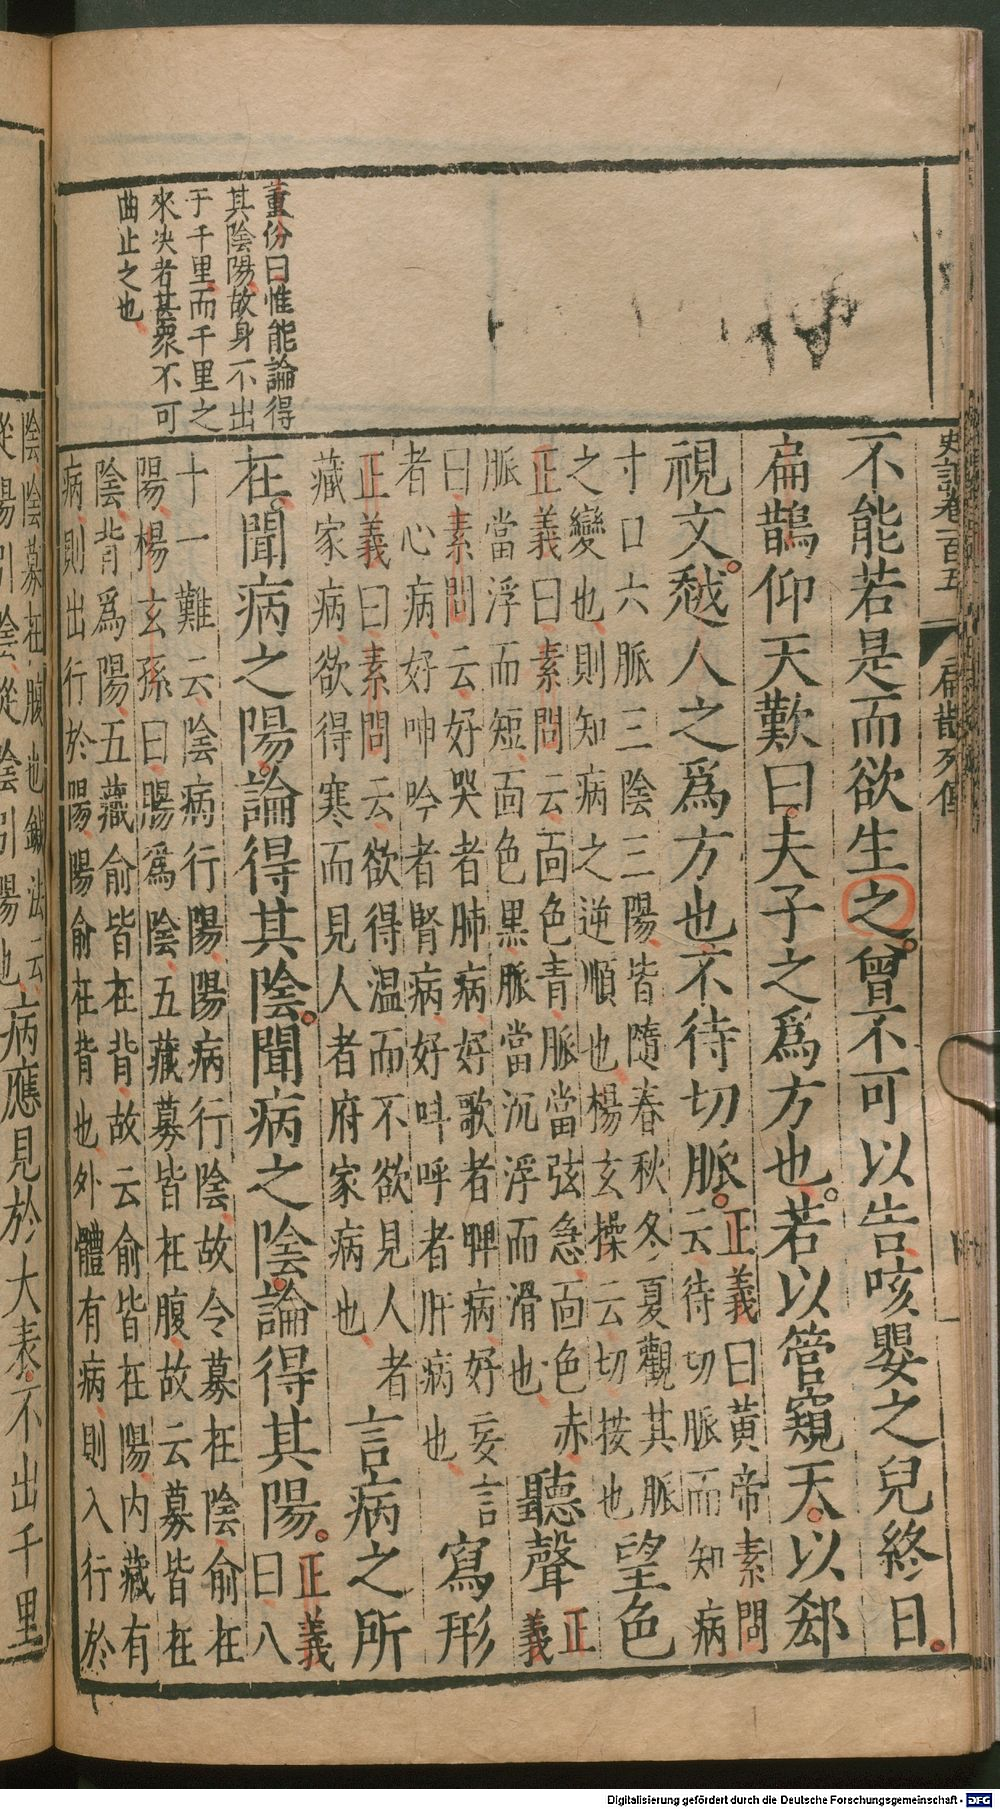 史記卷一百五 扁鵲列傳
不能若是而欲生之曾不可以告咳嬰之兒終日
扁鵲仰天歎曰夫子之爲方也若以管窺天以郄
視文越人之爲方也不待切脈正義曰黃帝素問
云待切脈而知病
寸口六脈三陰三陽皆隨春秋冬夏觀其脈
之變也則知病之逆順也楊玄操云切按也望色
正義曰素問云面色青脈當弦急面色赤
脈當浮而短面色黑脈當沉浮而滑也聽聲正
義
曰素問云好哭者肺病好歌者脾病好妄言
者心病好呻吟者腎病好叫呼者肝病也寫形
正義曰素問云欲得温而不欲見人者
藏家病欲得寒而見人者府家病也言病之所
在聞病之陽論得其陰聞病之陰論得其陽正義
曰八
十一難云陰病行陽陽病行陰故令募在陰俞在
陽楊玄孫曰腸爲陰五藏募皆在腹故云募皆在
陰背爲陽五藏俞皆在背故云俞皆在陽内藏有
病則出行於陽陽俞在背也外體有病則入行於
董份曰惟能論得
其陰陽故身不出
于千里而千里之
來決者甚衆不可
曲止之也
陰陰募在腹也鍼法云
從陽引陰從陰引陽也病應見於大表不出千里
Digitalisierung gefördert durch die Deutsche Forschungsgemeinschaft - DFG